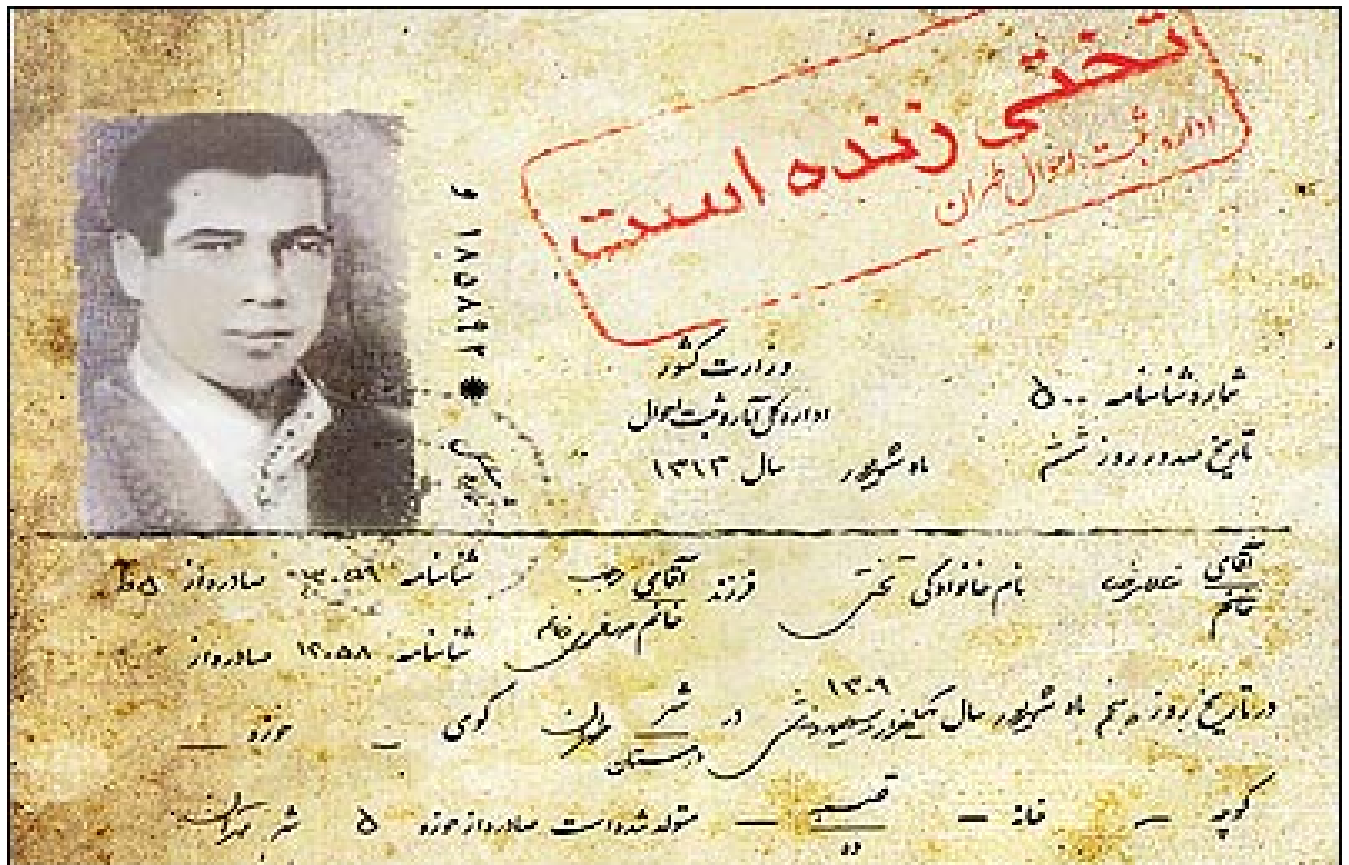 تختی زنده است
اداره ثبت احوال طهران
۶۱۸۵۸۴۲
وزارت کشور
اداره کل آمار و ثبت احوال
شماره شناسنامه ۵۰۰
تاریخ صدور روز ششم ماه شهریور سال ۱۳۱۳
آقای خانم غلامرضا نام خانوادگی تختی فرزند آقای رجب شناسنامه صادره از ۵
خانم شناسنامه ۱۲۰۵۸ صادره از
در تاریخ روز پنجم ماه شهریور سال یکهزار و سیصد و نه ۱۳۰۹ در شهر طهران کوی – حوزه –
کوچه – خانه – قصبه – متولد شده است صادره از حوزه ۵ شهر طهران
ده